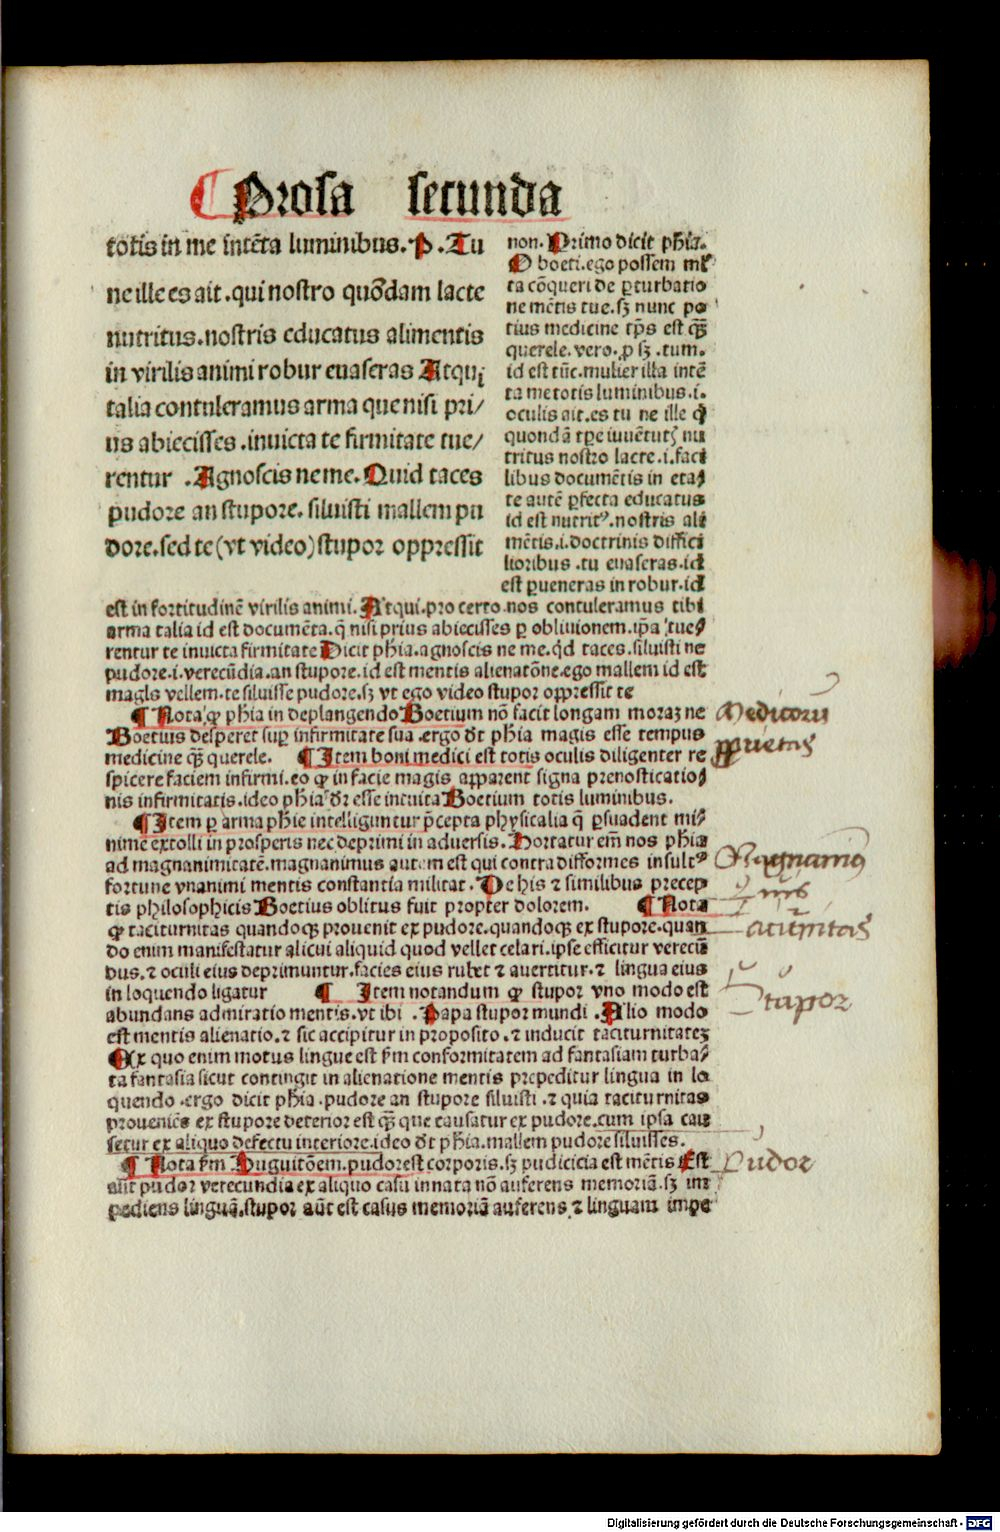 ¶ Prosa secunda
totis in me intēta luminibus. P. Tu
ne ille es ait .qui nostro quōdam lacte
nutritus.nostris educatus alimentis
in virilis animi robur euaseras Atqui
talia contuleramus arma que nisi pri/
us abiecisses .inuicta te firmitate tue/
rentur .Agnoscis ne me. Quid taces
pudore an stupore. siluisti mallem pu
dore.sed te (vt video) stupor oppressit
non. Primo dicit ph̄ia.
O boeti.ego possem ml̄
ta cōqueri de ꝑturbatio
ne mētis tue.sꝫ nunc po
tius medicine tp̄s est qꝫ̄
querele. vero. ꝓ sꝫ .tum.
id est tūc.mulier illa intē
ta me totis luminibus.i.
oculis ait.es tu ne ille q̄
quondā tꝑe iuuētutꝭ nu
tritus nostro lacte.i.faci
libus documētis in eta/
te autē ꝑfecta educatus
id est nutritꝰ.nostris ali
mētis.i.doctrinis diffici
lioribus .tu euaseras.id
est ꝑueneras in robur.id
est in fortitudinē virilis animi. Atqui.pro certo nos contuleramus tibi
arma talia id est documēta.q̄ nisi prius abiecisses ꝑ obliuionem.ip̄a tue/
rentur te inuicta firmitate Dicit ph̄ia.agnoscis ne me.qd̄ taces.siluisti ne
pudore.i.verecūdia.an stupore.id est mentis alienatōne.ego mallem id est
magis vellem.te siluisse pudore.sꝫ vt ego video stupor oppressit te
¶ Nota ꝙ ph̄ia in deplangendo Boetium nō facit longam moraꝫ ne
Boetius desperet suꝑ infirmitate sua .ergo dr̄ ph̄ia magis esse tempus
medicine qꝫ̄ querele. ¶ Item boni medici est totis oculis diligenter re
spicere faciem infirmi.eo ꝙ in facie magis apparent signa prenosticatio/
nis infirmitatis.ideo ph̄ia dr̄ esse intuita Boetium totis luminibus.
¶ Item ꝑ arma ph̄ie intelliguntur p̄cepta physicalia q̄ ꝑsuadent mi/
nime extolli in prosperis nec deprimi in aduersis. Hortatur em̄ nos ph̄ia
ad magnanimitatē.magnanimus autem est qui contra difformes insultꝰ
fortune vnanimi mentis constantia militat. De his ⁊ similibus precep
tis philosophicis Boetius oblitus fuit propter dolorem. ¶ Nota
ꝙ taciturnitas quandoqꝫ prouenit ex pudore.quandoqꝫ ex stupore.quan
do enim manifestatur alicui aliquid quod vellet celari.ipse efficitur verecū
dus.⁊ oculi eius deprimuntur.facies eius rubet ⁊ auertitur.⁊ lingua eius
in loquendo ligatur ¶ Item notandum ꝙ stupor vno modo est
abundans admiratio mentis.vt ibi .Papa stupor mundi .Alio modo
est mentis alienatio.⁊ sic accipitur in proposito.⁊ inducit taciturnitateꝫ
Ex quo enim motus lingue est fm̄ conformitatem ad fantasiam turba/
ta fantasia sicut contingit in alienatione mentis prepeditur lingua in lo
quendo .ergo dicit ph̄ia .pudore an stupore siluisti .⁊ quia taciturnitas
proueniēs ex stupore deterior est qꝫ̄ que causatur ex pudore.cum ipsa cau
setur ex aliquo defectu interiore.ideo dr̄ ph̄ia.mallem pudore siluisses.
¶ Nota fm̄ Huguitōem.pudor est corporis.sꝫ pudicicia est mētis Est
aūt pudor verecundia ex aliquo casu innata nō auferens memoriā.sꝫ im
pediens linguā.stupor aūt est casus memoriā auferens.⁊ linguam impe
Medicorū
ꝓprietas
Magnanimꝰ
quis
Taciturnitas
Stupor
Pudor
Digitalisierung gefördert durch die Deutsche Forschungsgemeinschaft - DFG